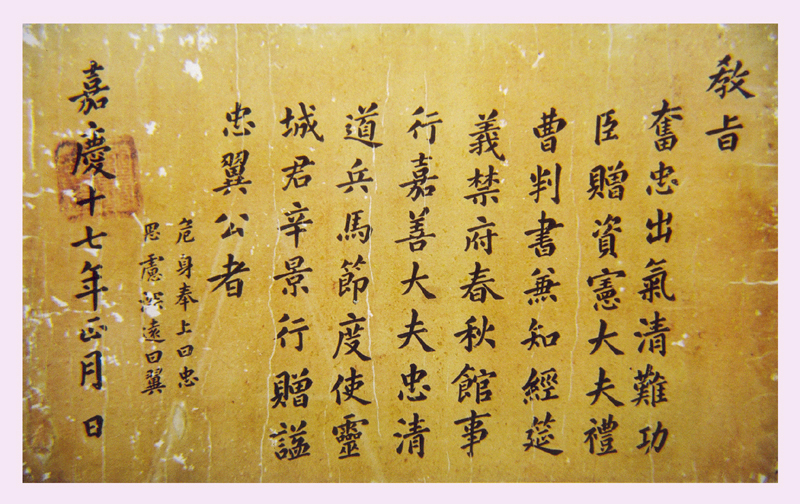 教旨
奮忠出氣清難功
臣贈資憲大夫禮
曹判書兼知經筵
義禁府春秋館事
行嘉善大夫忠清
道兵馬節度使靈
城君辛景行贈諡
忠翼公者
危身奉上曰忠
思慮深遠曰翼
嘉慶十七年正月 日